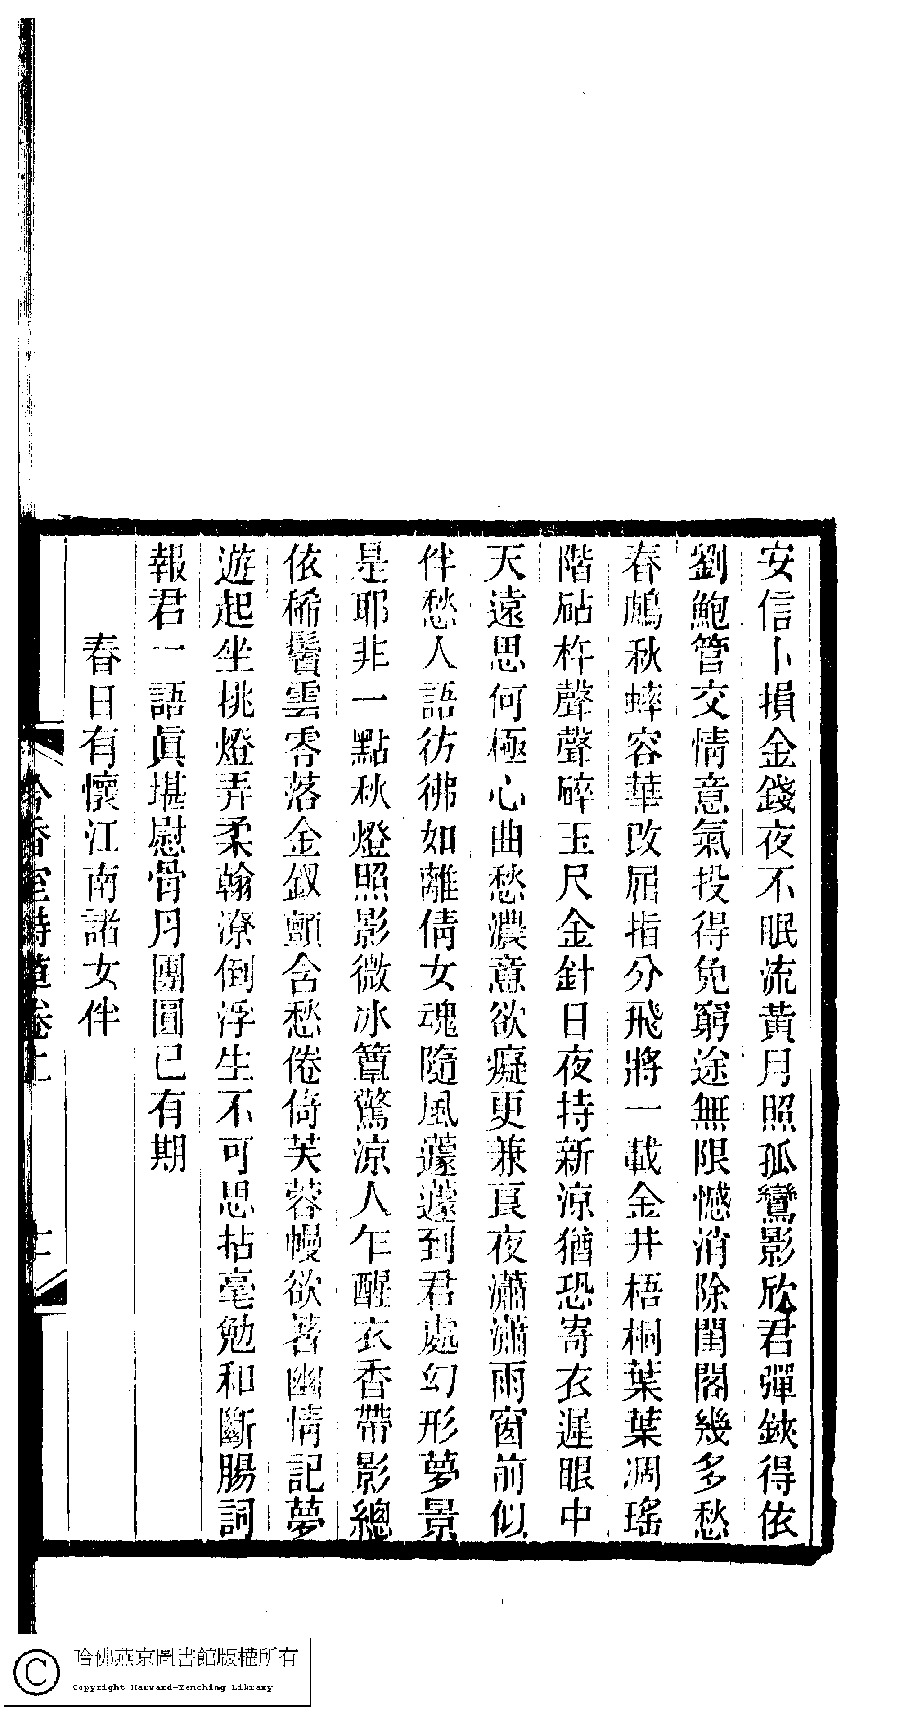 安信卜損金錢夜不眠流黃月照孤鸞影欣君彈鋏得依
劉鮑管交情意氣投得免窮途無限憾消除閨閣幾多愁
春鷓秋蟀容華改屈指分飛將一載金井梧桐葉葉凋瑤
階砧杵聲聲碎玉尺金針日夜持新涼猶恐寄衣遲眼中
天遠思何極心曲愁濃意欲癡更兼良夜瀟瀟雨窗前似
伴愁人語彷彿如離倩女魂隨風蘧蘧到君處幻形夢景
是耶非一點秋燈照影微冰簟驚涼人乍醒衣香帶影總
依稀鬢雲零落金釵顫含愁倦倚芙蓉幔欲著幽情記夢
遊起坐挑燈弄柔翰潦倒浮生不可思拈毫勉和斷腸詞
報君一語眞堪慰骨月團圓已有期
春日有懷江南諸女伴
吟香室詩草卷上
哈佛燕京圖書館版權所有
Copyright Harvard-Yenching Library